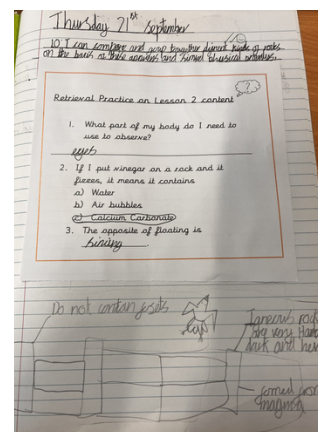 Thursday 21st September
LO. I can compare and group together different kinds of rocks
on the basis of their appearance and simple physical properties.
Retrieval Practice on Lesson 2 content
1. What part of my body do I need to
use to observe?
eyes
2. If I put vinegar on a rock and it
fizzes, it means it contains
a) Water
b) Air bubbles
c) Calcium Carbonate
3. The opposite of floating is
sining.
Do not contan
Igneous rock
are very Hard
dark and
magma